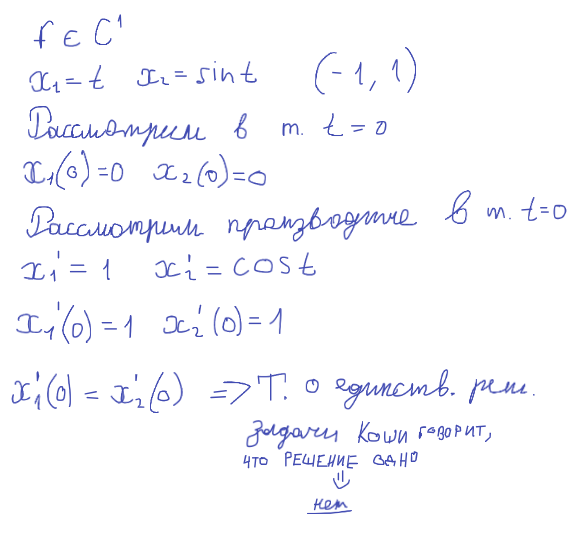 f ∈ C¹
x₁ = t x₂ = sint (-1, 1)
Рассмотрим в т. t = 0
x₁(0) = 0 x₂(0) = 0
Рассмотрим производные в т. t=0
x₁' = 1 x₂' = cost
x₁'(0) = 1 x₂'(0) = 1
x₁'(0) = x₂'(0) => Т. о единств. реш.
задачи Коши говорит,
что РЕШЕНИЕ ОДНО
⇓
нет